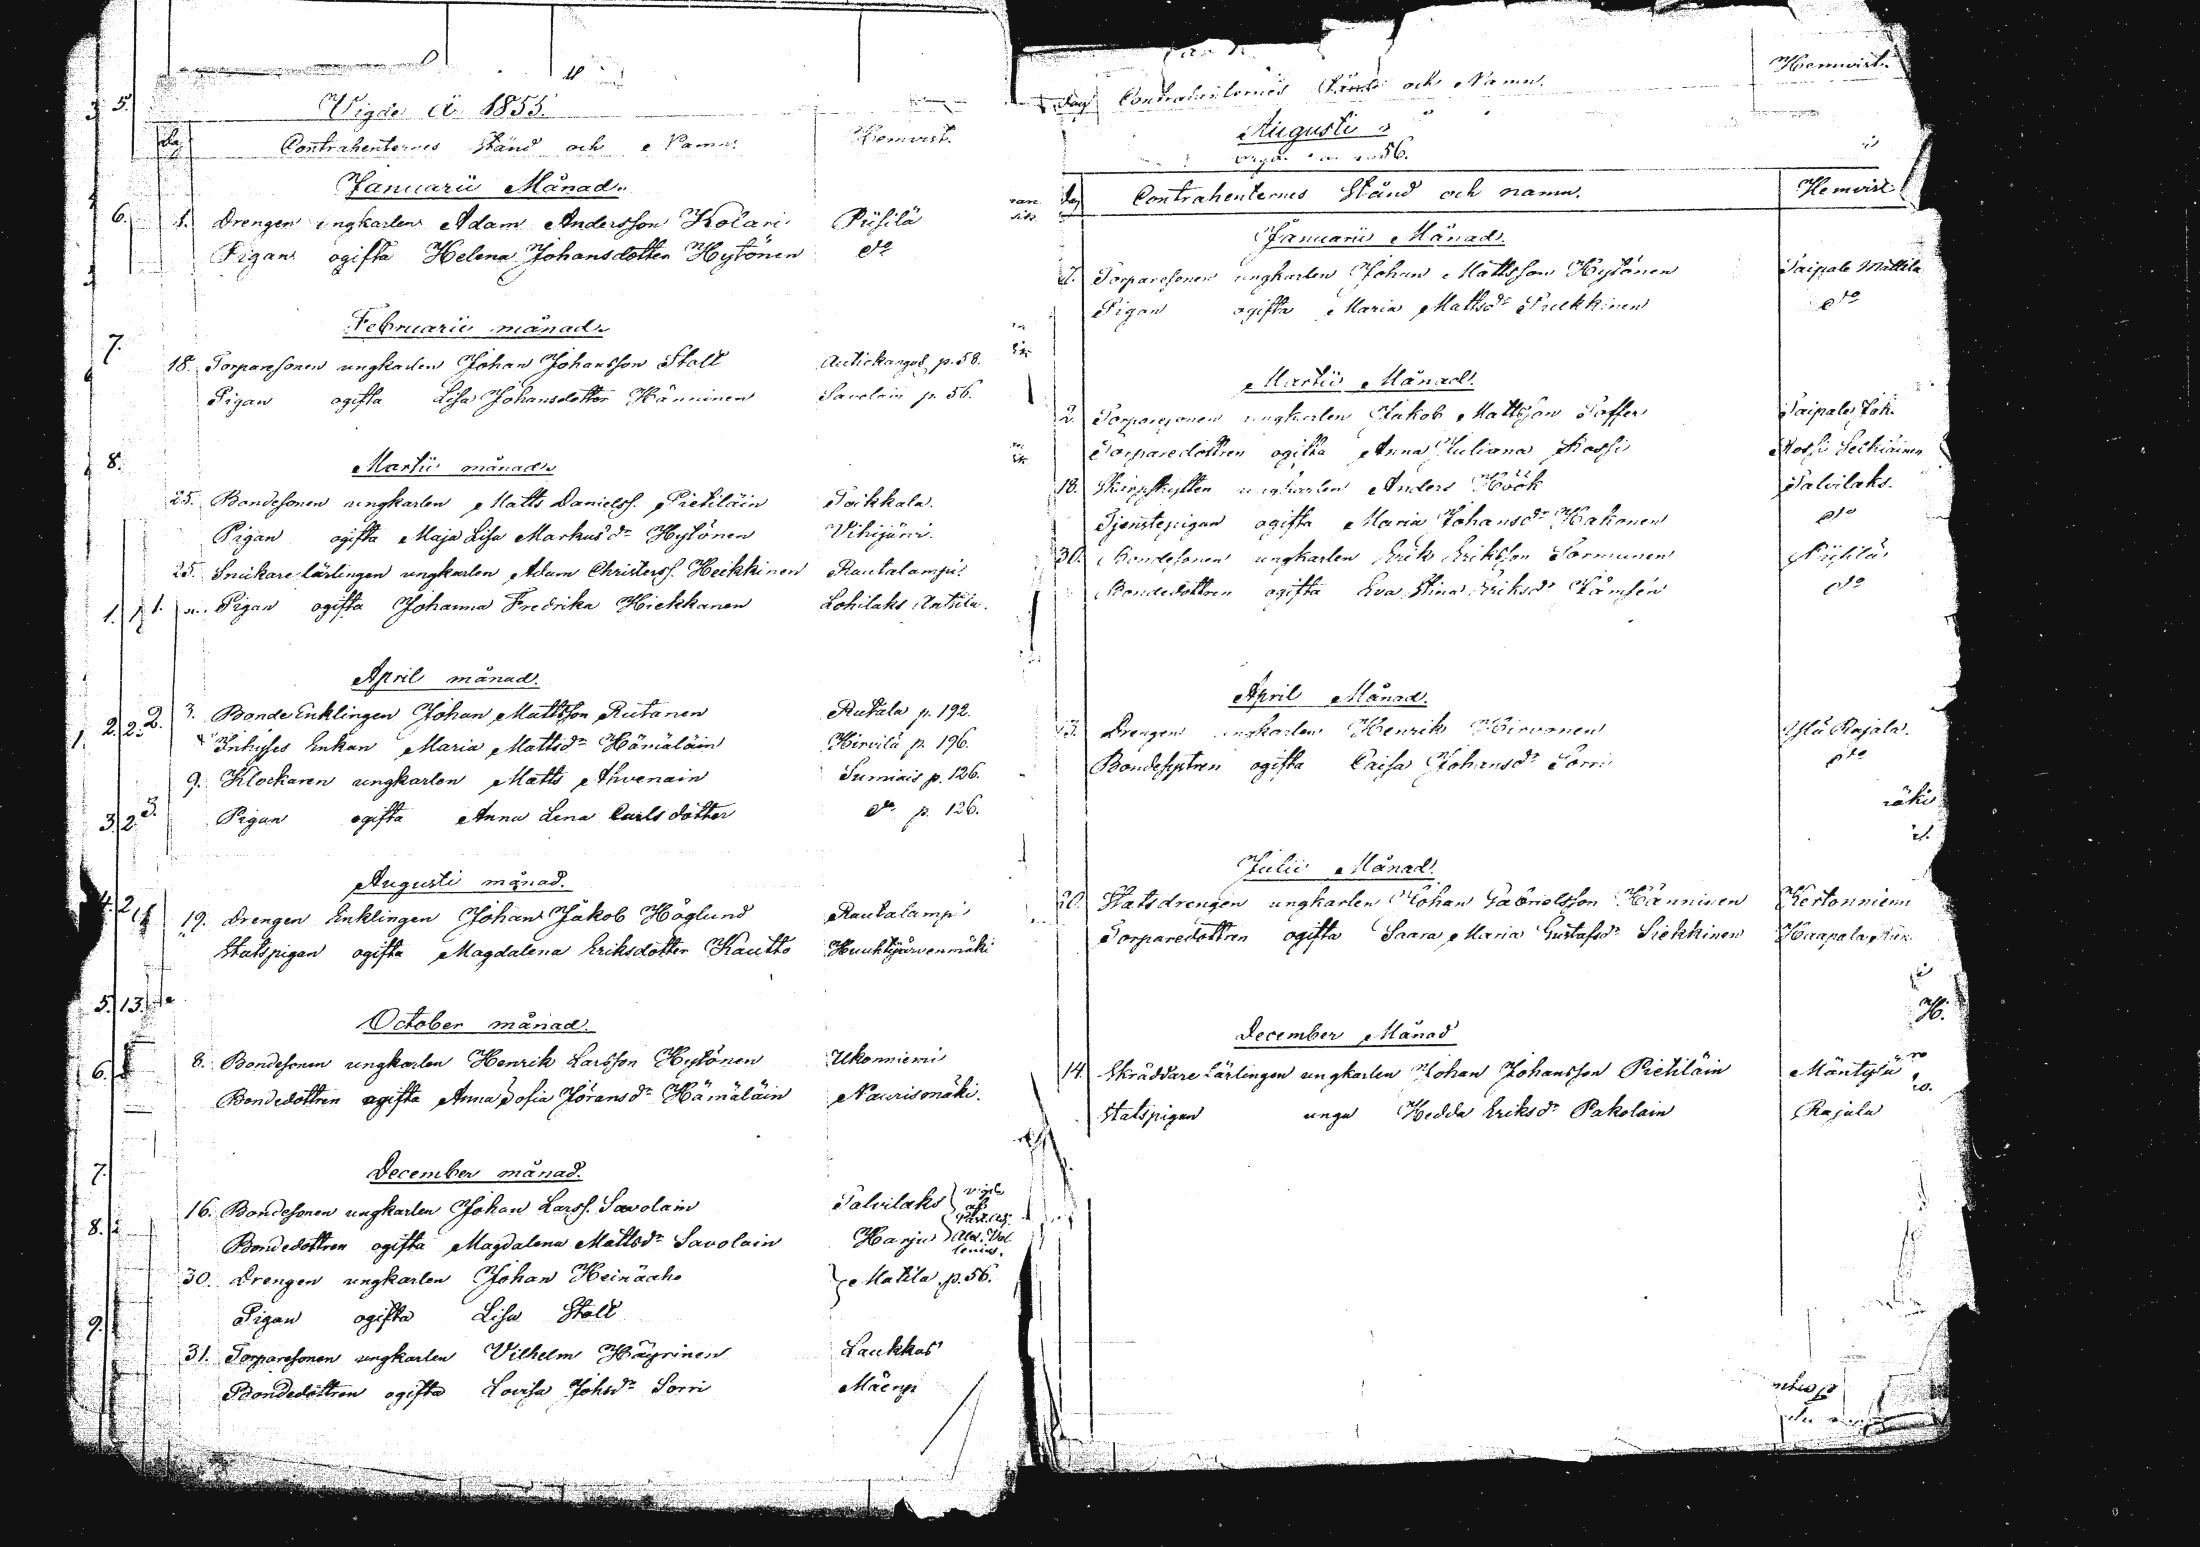 Wigde År 1855.
Dag Contrahenternes Stånd och Namn. Hemvist.
Januarii Månad.
1. Drengen ungkarlen Adam Andersson Kolari Piisilä
Pigan ogifta Helena Johansdotter Hytönen do
Februarii månad.
18. Torparesonen ungkarlen Johan Johansson Stolt p. 58.
Pigan ogifta Lisa Johansdotter Hänninen Savolain p. 56.
Martii månad.
25. Bondesonen ungkarlen Matts Danielss. Pietiläin Toikkala.
Pigan ogifta Maja Lisa Markusdr Hytönen Vihijärvi.
25. Snickare lärlingen ungkarlen Adam Christerss. Heikkinen Rautalampi
Pigan ogifta Johanna Fredrika Hiekkanen Lohilaks Anttila.
April månad.
3. Bonde Enklingen Johan Mattsson Rutanen Rutala p. 192.
Inhyses Enkan Maria Mattsdr Hämäläin Hirvilä p. 196.
9. Klockaren ungkarlen Matts Ahvenain Sumiais p. 126.
Pigan ogifta Anna Lena Carlsdotter do p. 126.
Augusti månad.
19. Drengen Enklingen Johan Jakob Höglund Rautalampi
Statspigan ogifta Magdalena Eriksdotter Kautto
October månad.
8. Bondesonen ungkarlen Henrik Larsson Hytönen Ukonniemi
Bondedottren ogifta Anna Sofia Göransdr Hämäläin Naurismäki.
December månad.
16. Bondesonen ungkarlen Johan Larss. Savolain Talvilaks
Bondedottren ogifta Magdalena Mattsdr Savolain Harju
30. Drengen ungkarlen Johan Heinäaho Matila p. 56.
Pigan ogifta Lisa Stolt
31. Torparesonen ungkarlen Vilhelm Häyrinen Laukkas
Bondedottren ogifta Lovisa Johsdr Sorri
Contrahenternes Stånd och Namn. Hemvist.
Augusti
Dag Contrahenternes Stånd och namn. Hemvist
Januarii Månad.
Torparesonen ungkarlen Johan Mattsson Hytönen Taipale Mattila
Pigan ogifta Maria Mattsdr Pukkinen do
Martii Månad.
2. Torparesonen ungkarlen Jakob Mattsson Toffer
Torparedottren ogifta Anna Juliana Kossi
18. ungkarlen Anders Höök Talvilaks.
Tjenstepigan ogifta Maria Johansdr Hakonen do
30. Bondesonen ungkarlen Erik Eriksson Tormunen
Bondedottren ogifta Eva Stina Eriksdr Kämsén do
April Månad.
13. Drengen ungkarlen Henrik Hirvonen Rajala.
ogifta Caisa Johansdr Sorri do
Julii Månad.
20. Statsdrengen ungkarlen Johan Gabrielsson Hänninen
Torparedottren ogifta Saara Maria Gustafsdr Siekkinen Haapala
December Månad
14. Skräddare Lärlingen ungkarlen Johan Johansson Pietiläin Mäntylä
Statspigan unga Hedda Eriksdr Pakolain Rajala